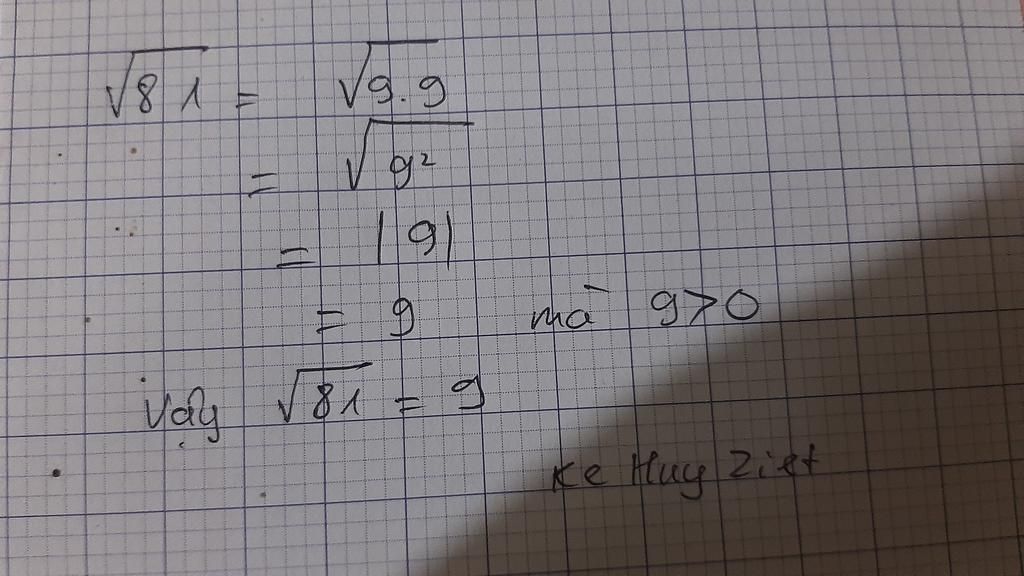 √81 = √9.9
= √9²
= |9|
= 9 mà 9>0
Vậy √81 = 9
Ke Huy Ziet